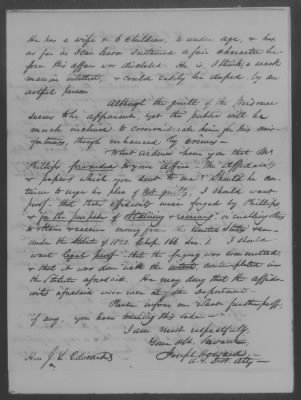 He has a wife & 6 children, & under age, & has
as far as I can learn sustained a fair character be-
fore this affair was disclosed. He is, I think, a weak
man in intellect, & could easily be duped by an
artful person.
Although the guilt of the Prisoner
seems to be apparent, yet the public will be
much inclined to commiserate him for his mis-
fortunes, though enhanced by crime—
What evidence have you that Mr.
Phillips forwarded to your Office the Affidavits
& papers which you sent to me? Should he con-
tinue to urge his plea of Not guilty, I should want
proof that these affidavits were forged by Phillips
& for the purpose of obtaining & receiving or enabling others
to obtain & receive money from the United States un-
der the Statute of 1823. Chap. 166. Sec. 1. I should
want legal proof that the forging was committed
& that it was done with the intent contemplated in
the Statute aforesaid. He may deny that the affida-
vits aforesaid were ever at the Department.
Please inform me what further proof,
if any, you have touching this case—
I am most respectfully
Your obt. Servant
Joseph Howard
U.S. Dist. Atty
Hon J. L. Edwards